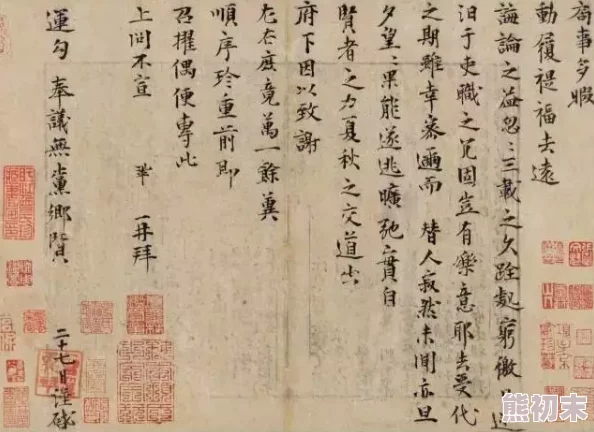 局事多暇
動履禔福去遠
誨論之益忽〻三載之久跧處窮徼日迷
汨于吏職之冗固豈有樂意耶去受代
之期雖幸密邇而替人寂然未聞亦旦
夕望〻果能遂逃曠弛實自
賢者之力夏秋之交道出
府下因以致謝
左右庶竟萬一餘冀
順序珍重前即
召擢偶便專此
上問不宣 鞏 再拜
運勾奉議無黨鄉賢 二十七日謹啟
熊初末